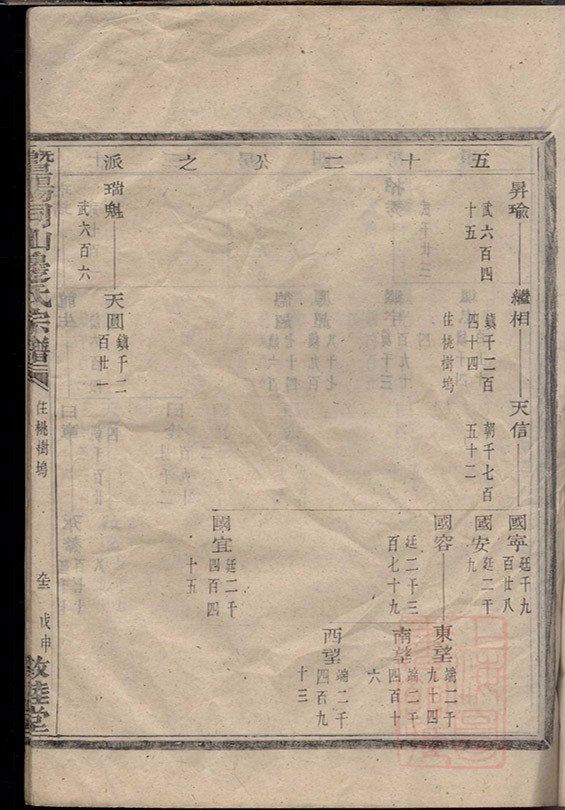 五十二公之派
昇瑜
武六百四
十五
繼相
鎮千二百
四十四
住桃樹塢
天信
朝千七百
五十二
國寧
廷千九
百廿八
國安
廷二千
九
國容
廷二千三
百七十九
東望
端二千
九十四
南望
端二千
四百十
六
西望
端二千
四百九
十三
國宜
廷二千
四百四
十五
瑞魁
武六百六
天圓
鎮千二
百廿一
暨陽同山邊氏宗譜
住桃樹塢
戊申
敦睦堂